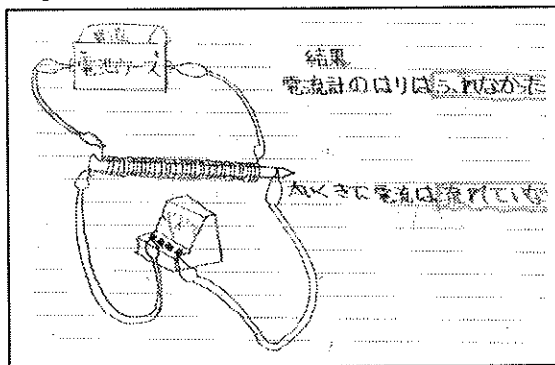 電池
電池ケース
結果
電流計のはりはふれなかった
大くぎに電流は流れていな